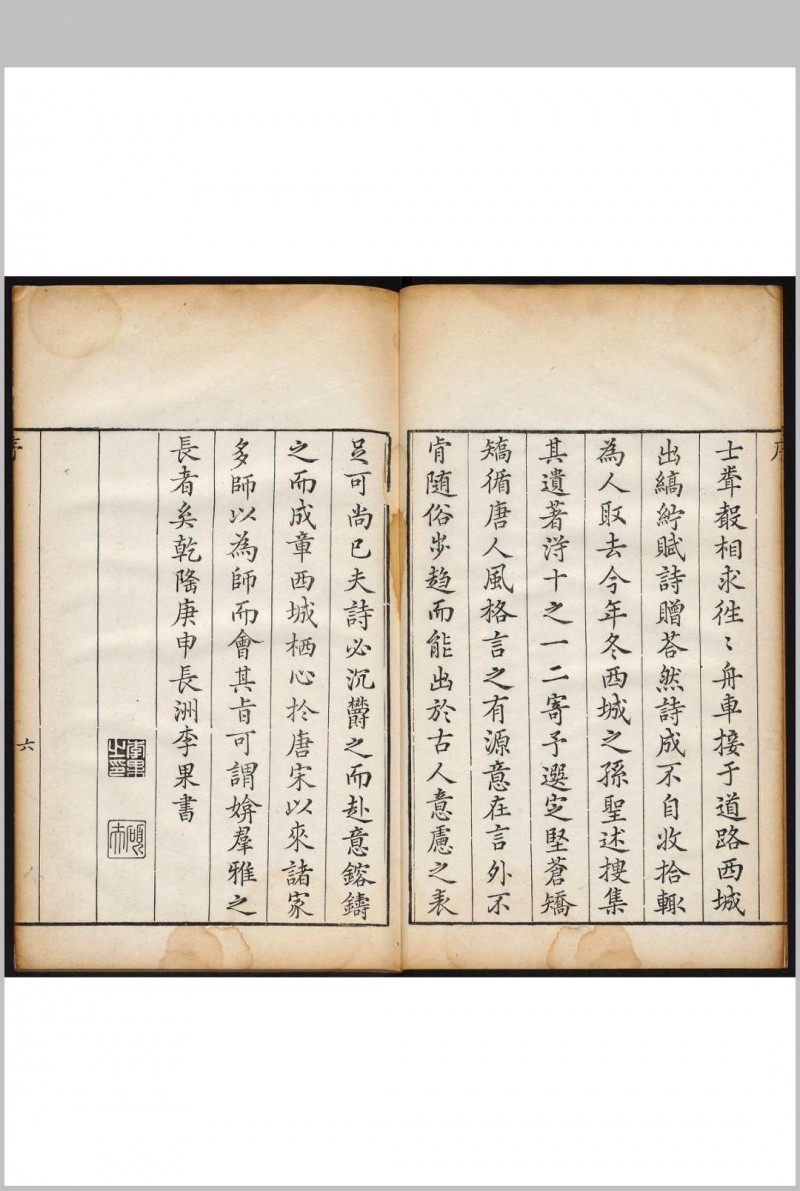 序
士羣聲相求徃〻舟車接于道路西城
出縞紵賦詩贈荅然詩成不自收拾輒
為人取去今年冬西城之孫聖述搜集
其遺著淂十之一二寄予選定堅蒼矯
矯循唐人風格言之有源意在言外不
肯随俗步趨而能出於古人意慮之表
足可尚已夫詩必沉欝之而赴意鎔鑄
之而成章西城栖心扵唐宋以來諸家
多師以為師而會其旨可謂媕羣雅之
長者矣乾隆庚申長洲李果書
李果之印
碩夫
序
六